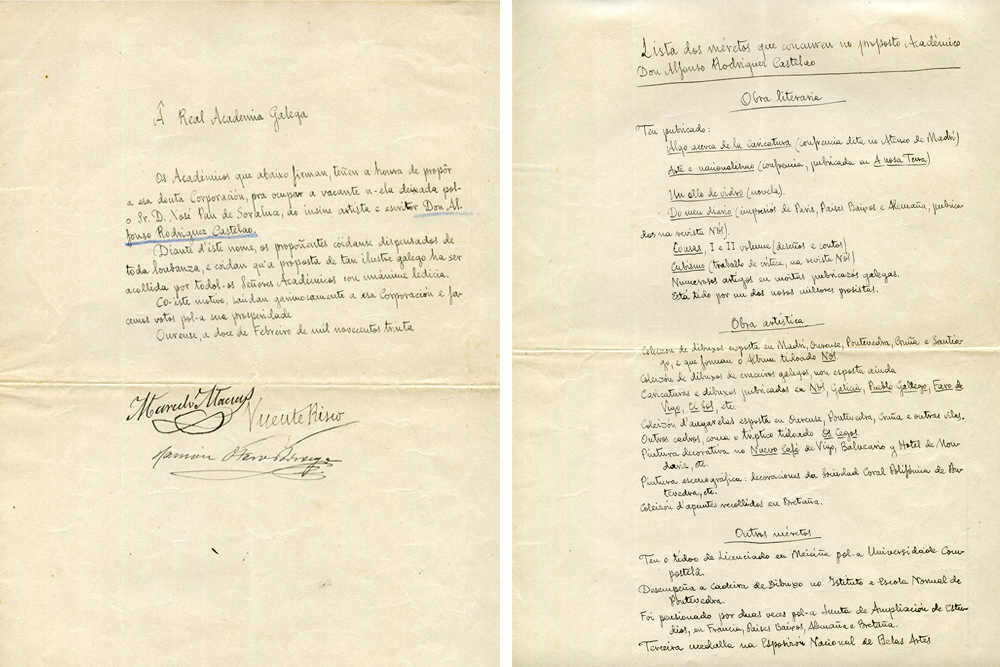 Â Real Academia Galega
Os Académicos que abaixo firman, teñen a honra de propôr
a esa douta Corporación, pra ocupar a vacante n-ela deixada pol-
o Sr. D. Xosé Pan de Soraluce, ao insine artista e escritor Don Al-
fonso Rodríguez Castelao.
Diante d'iste nome, os propoñentes cóidanse dispensados de
toda loubanza, e cóidan qu'a proposta de tan ilustre galego ha ser
acollida por todol-os Señores Académicos con unánime ledicia.
Co-iste motivo, saúdan garimosamente a esa Corporación e fa-
cemos votos pol-a sua prosperidade
Ourense, a doce de Febreiro de mil novecentos trinta
Marcelo Macías
Vicente Risco
Ramón Otero Pedrayo
Lista dos méretos que concurren no proposto Académico
Don Alfonso Rodríguez Castelao
Obra literaria
Ten pubricado:
Algo acerca de la caricatura (confrencia dita no Ateneo de Madrí)
Arte e nacionalismo (confrencia, pubricada en A nosa Terra)
Un ollo de vidro (novela).
Do meu diario (impresiós de París, Países Baixos e Alemaña, pubrica-
dos na revista Nós).
Cousas, I e II volume (deseños e contos)
Cubismo (traballo de crítica, na revista Nós)
Numerosos artigos en moitas pubricazós galegas.
Está tido por un dos nosos millores prosistas.
Obra artística
Coleizón de dibuxos exposta en Madrí, Ourense, Pontevedra, Cruña e Santia-
go, e que forman o Album tidoado Nós
Coleizón de dibuxos de cruceiros galegos, non exposta ainda
Caricaturas e dibuxos pubricados en Nós, Galicia, Pueblo Gallego, Faro de
Vigo, El Sol, etc.
Coleizón d'augarelas exposta en Ourense, Pontevedra, Cruña e outras vilas.
Outros cadros, coma o tríptico tidoado Os Cegos.
Pintura decorativa no Nuevo Café de Vigo, Balneario y Hotel de Mon-
dariz, etc.
Pintura escenográfica: decoraciones da Sociedad Coral Polifónica de Pon-
tevedra, etc.
Coleizón d'apuntes recollidos en Bretaña.
Outros méretos
Ten o tidoo de Licenciado en Meiciña pol-a Universidade Com-
postelá.
Desempeña a Cadeira de Dibuxo no Istituto e Escola Normal de
Pontevedra.
Foi pensionado por duas veces pol-a Xunta de Ampliación de Estu-
dios, en Francia, Países Baixos, Alemaña e Bretaña.
Terceira medalla na Esposizón Nacional de Belas Artes